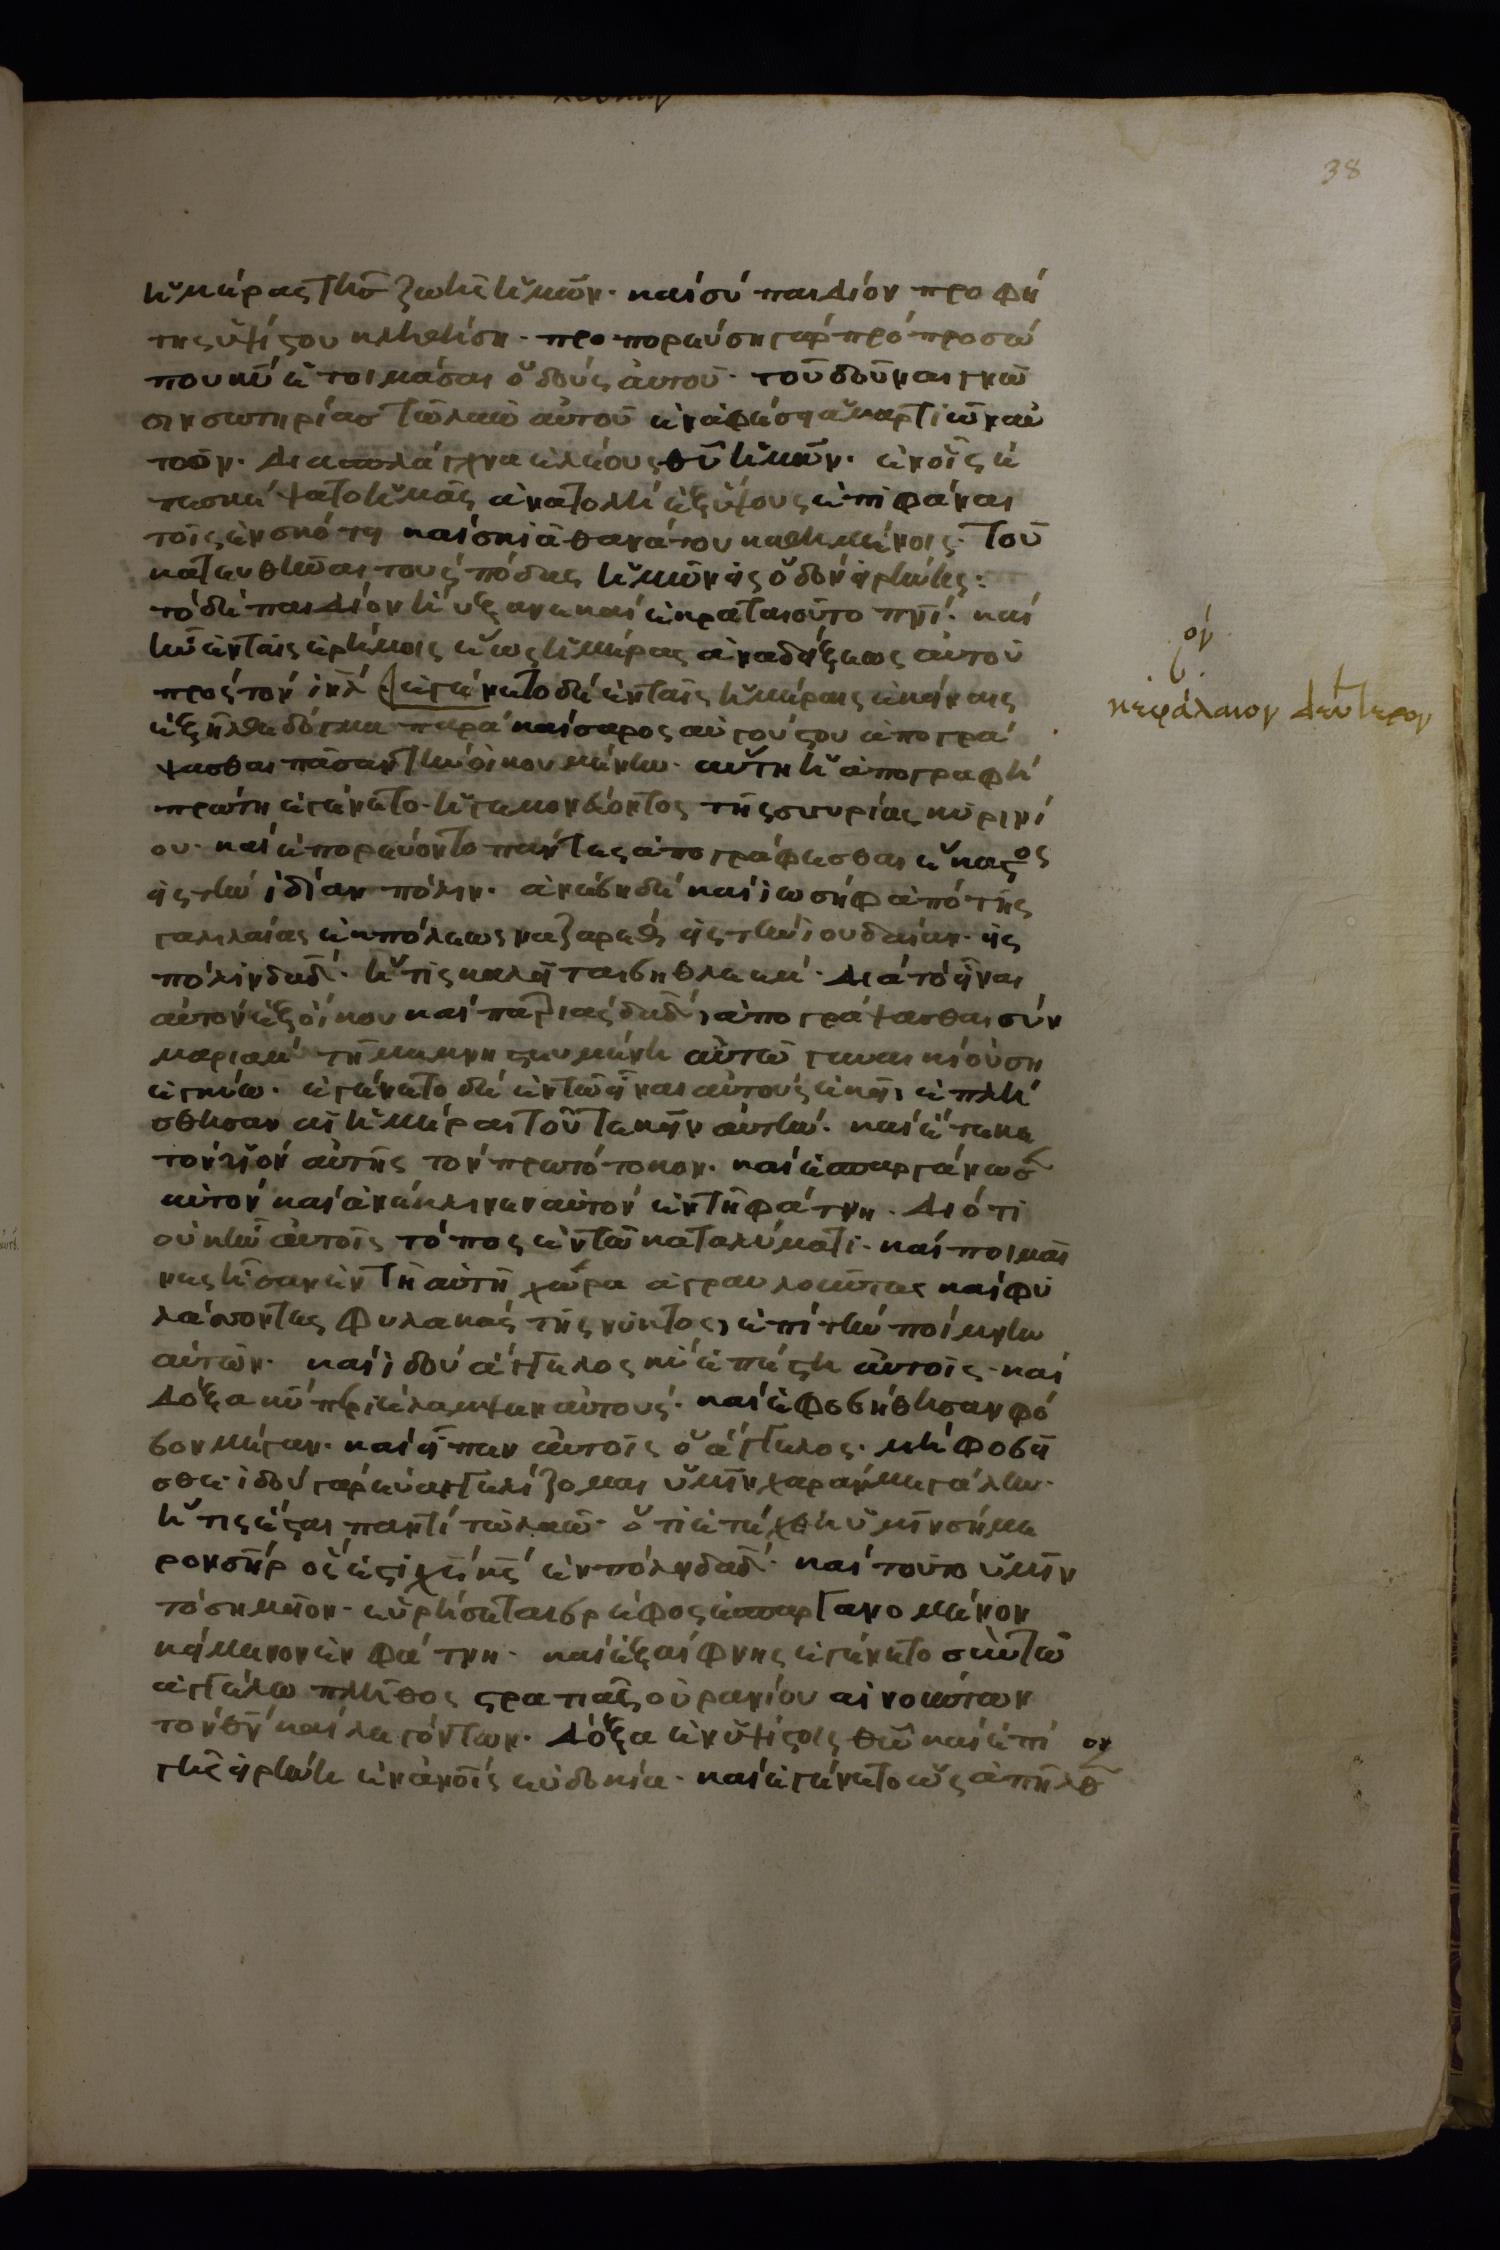 38
ἡμέρας τῆσ ζωῆς ἡμῶν· καὶ σύ παιδίον προφή
της ὑψίστου κληθήση· προπορεύση γάρ πρό προσώ
που κυ ἑτοιμάσαι ὁδούς ἀυτοῦ· τοῦ δοῦναι γνῶ
σιν σωτηρίασ τῶ λαῶ αὐτοῦ ἐν ἀφέσει ἁμαρτιῶν αὐ
τῶν· δια σπλάγχνα ἐλέους θυ ἡμῶν· ἐν οἷς ἐ
πεσκέψατο ἡμᾶς ἀνατολή ἐξ ὕψους ἐπιφάναι
τοῖς ἐν σκότει καί σκιᾶ θανάτου καθημένοις· τοῦ
κατευθῦναι τούς πόδας ἡμῶν εἰς ὁδόν εἰρήνης·
τό δέ παιδίον ἠύξανε καί ἐκραταιοῦτο πνι· καί
ἦν ἐν ταῖς ἐρήμοις ἕως ἡμέρας ἀναδείξεως ἀυτοῦ
πρός τόν ἰηλ· ἐγένετο δέ ἐν ταῖς ἡμέραις ἐκείναις
ἐξῆλθε δόγμα παρά καίσαρος αὐγούστου ἀπογρά
ψασθαι πᾶσαν τήν οἰκουμένην· αὕτη ἡ ἀπογραφή
πρώτη ἐγένετο· ἡγεμονεύοντος τῆς συρίας κυρινί
ου· καί ἐπορεύοντο πάντες ἀπογράφεσθαι ἕκαστος
εἰς τήν ἰδίαν πόλιν· ἀνέβη δέ καί ἰωσήφ ἀπό τῆς
γαλιλαίας ἐκ πόλεως ναζαρέθ εἰς τήν ἰουδαίαν· εἰς
πόλιν δαδ· ἥτις καλεῖται βηθλεέμ· διά τό εἶναι
ἀυτόν ἐξ ὀίκου καί πατριάς δαδ, ἀπογράψασθαι σύν
μαριάμ τῆ μεμνηστευμένη αὐτῶ γυναικί ὄυση
ἐγκύω· ἐγένετο δέ ἐν τῶ εἶναι αὐτούς ἐκεῖ, ἐπλή
σθησαν αἱ ἡμέραι τοῦ τεκεῖν αὐτήν· καί ἔτεκε
τόν υἱόν αὐτῆς τόν πρωτότοκον· καί ἐσπαργάνωσ
αὐτόν καί ἀνέκλινεν αὐτόν ἐν τῆ φάτνη· διότι
οὐκ ἦν αὐτοῖς τόπος ἐν τῶ καταλύματι· καί ποιμέ
νες ἦσαν ἐν τῆ αὐτῆ χώρα ἀγραυλοῦντες καί φυ
λάσσοντες φυλακάς τῆς νυκτος, ἐπί τήν ποίμνην
αὐτῶν· καί ἰδού ἄγγελος κυ ἐπέστη ἀυτοῖς· καί
δόξα κυ περιέλαμψεν αὐτούς· καί ἐφοβήθησαν φό
βον μέγαν· καί εἶπεν ἀυτοῖς ὁ ἄγγελος· μή φοβεῖ
σθε· ἰδού γάρ ἐυαγγελίζομαι ὑμῖν χαράν μεγάλην·
ἥτις ἔσται παντί τῶ λαῶ· ὅτι ἐτέχθη ὑμῖν σήμε
ρον σηρ ὅς ἐστι χς κς ἐν πόλει δαδ· καί τοῦτο ὑμῖν
τό σημεῖον· εὑρήσεται βρέφος ἐσπαργανομένον
κείμενον ἐν φάτνη· καί ἐξαίφνης ἐγένετο σύν τῶ
ἀγγέλω πλῆθος στρατιᾶς οὐρανίου αἰνούντων
τόν θν καί λεγόντων· δόξα ἐν ὑψίστοις θῶ καί ἐπί
γῆς εἰρήνη ἐν ἀνοις εὐδοκία· καί ἐγένετο ὡς ἀπῆλθον
κεφάλαιον δεύτερον